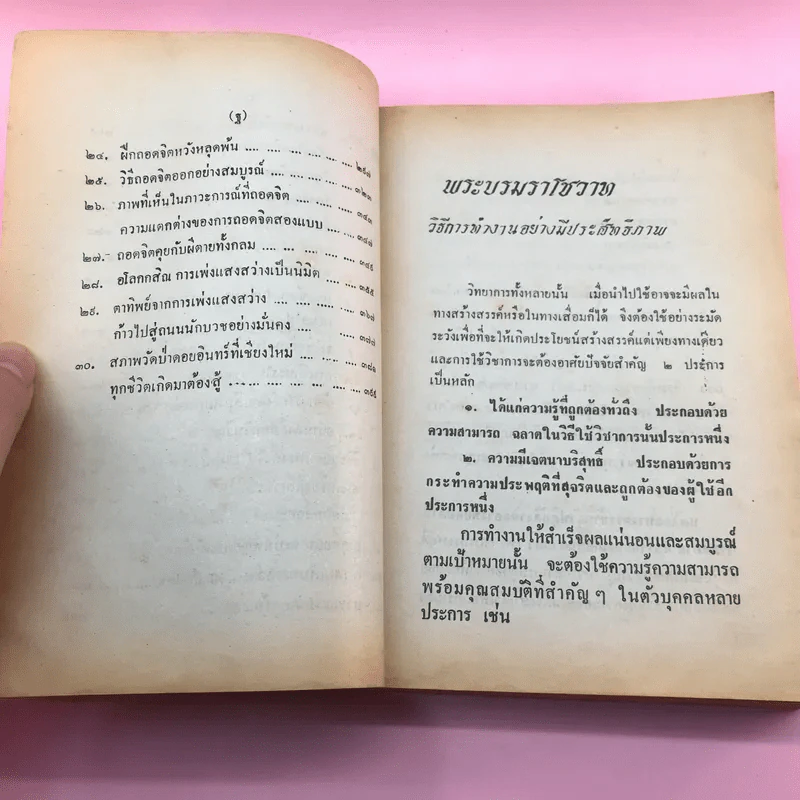 (ฐ)
๒๔. ฝึกถอดจิตหวังหลุดพ้น .... .... .... .... .... ๒๙๗
๒๕. วิธีถอดจิตออกอย่างสมบูรณ์ .... .... .... .... ๓๒๓
๒๖. ภาพที่เห็นในภาวะการณ์ที่ถอดจิต .... .... .... ๓๔๓
ความแตกต่างของการถอดจิตสองแบบ .... .... ๓๔๗
๒๗. ถอดจิตคุยกับผีตายทั้งกลม .... .... .... .... ๓๔๙
๒๘. อโลกกสิณ การเพ่งแสงสว่างเป็นนิมิต .... ๓๕๕
๒๙. ตาทิพย์จากการเพ่งแสงสว่าง .... .... .... ๓๖๗
ก้าวไปสู่ถนนนักบวชอย่างมั่นคง .... .... ๓๗๗
๓๐. สภาพวัดป่าดอยอินทร์ที่เชียงใหม่ .... .... ๓๘๑
ทุกชีวิตเกิดมาต้องสู้ .... .... .... .... .... ๓๙๕
พระบรมราโชวาท
วิธีการทำงานอย่างมีประสิทธิภาพ
วิทยาการทั้งหลายนั้น เมื่อนำไปใช้อาจจะมีผลใน
ทางสร้างสรรค์หรือในทางเสื่อมก็ได้ จึงต้องใช้อย่างระมัด
ระวังเพื่อที่จะให้เกิดประโยชน์สร้างสรรค์แต่เพียงทางเดียว
และการใช้วิชาการจะต้องอาศัยปัจจัยสำคัญ ๒ ประการ
เป็นหลัก
๑. ได้แก่ความรู้ที่ถูกต้องทั่วถึง ประกอบด้วย
ความสามารถ ฉลาดในวิธีใช้วิชาการนั้นประการหนึ่ง
๒. ความมีเจตนาบริสุทธิ์ ประกอบด้วยการ
กระทำความประพฤติที่สุจริตและถูกต้องของผู้ใช้อีก
ประการหนึ่ง
การทำงานให้สำเร็จผลแน่นอนและสมบูรณ์
ตามเป้าหมายนั้น จะต้องใช้ความรู้ความสามารถ
พร้อมคุณสมบัติที่สำคัญ ๆ ในตัวบุคคลหลาย
ประการ เช่น